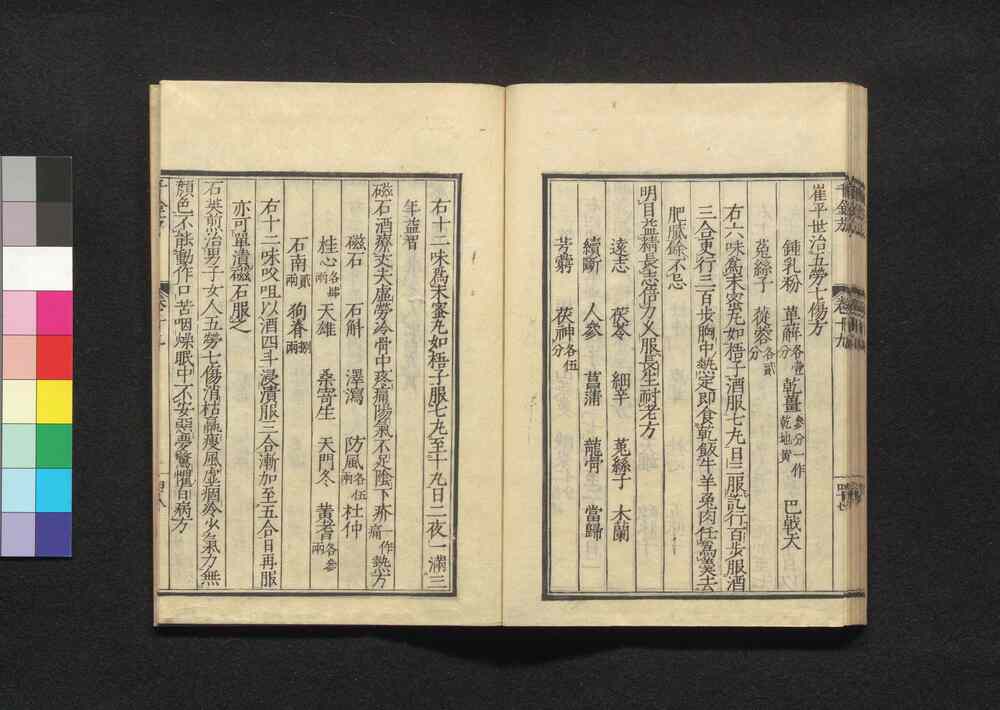 崔平世治五勞七傷方
鍾乳粉 萆薢各壹分 乾薑參分一作乾地黃 巴戟天
菟絲子 蓯蓉各貳分
右六味爲末蜜丸如梧子酒服七丸日三服訖行百步服酒
三合更行三百步胸中熱定即食乾飯牛羊兔肉任爲羹去
肥膩餘不忌
明目益精長志倍力久服長生耐老方
遠志 茯苓 細辛 菟絲子 木蘭
續斷 人參 菖蒲 龍骨 當歸
芎藭 茯神各伍分
千金方 卷十九
右十二味爲末蜜丸如梧子服七丸至十丸日二夜一滿三
年益智
磁石酒療丈夫虛勞冷骨中疼痛陽氣不足陰下痛一作疥熱方
磁石 石斛 澤瀉 防風各伍兩 杜仲
桂心各肆兩 天雄 桑寄生 天門冬 黃耆各參兩
石南貳兩 狗脊捌兩
右十二味㕮咀以酒四斗浸漬服三合漸加至五合日再服
亦可單漬磁石服之
石英煎治男子女人五勞七傷消枯羸瘦風虛痼冷少氣力無
顏色不能動作口苦咽燥眠中不安惡夢驚懼百病方